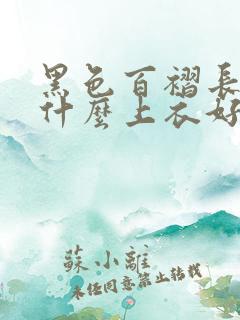 黑色百褶長
什麼上衣好
蘇小離
未經同意禁止轉載